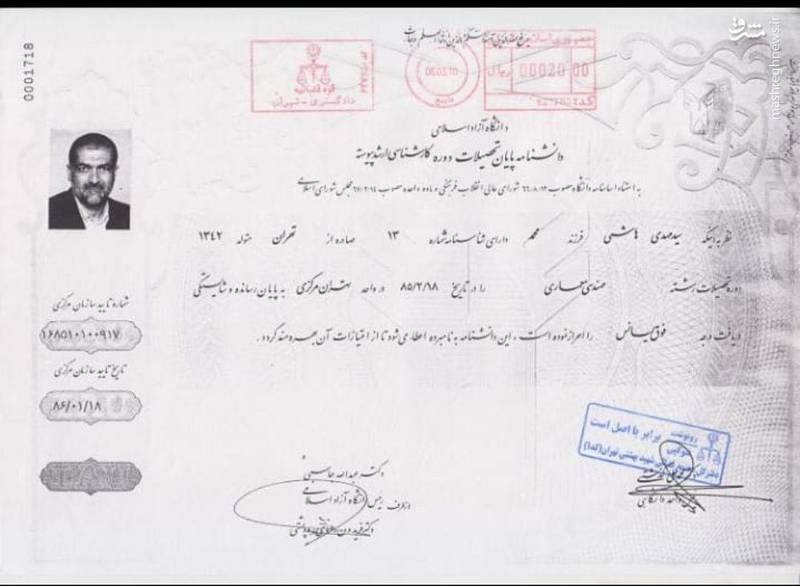 0001718
جمهوری اسلامی
قوه قضائیه
دادگستری - تهران
00020.00
ریال
مشرق
mashreghnews.ir
دانشگاه آزاد اسلامی
دانشنامه پایان تحصیلات دوره کارشناسی ارشد پیوسته
به استناد اساسنامه دانشگاه مصوب شورای عالی انقلاب فرهنگی و ماده واحده مصوب مجلس شورای اسلامی
نظر به اینکه سیدمهدی هاشمی فرزند محمد دارای شناسنامه شماره ۱۳ صادره از تهران متولد ۱۳۴۲
دوره تحصیلات رشته مهندسی معماری را در تاریخ ۸۵/۲/۱۸ در واحد تهران مرکزی به پایان رسانده و شایستگی
دریافت درجه فوق لیسانس را احراز نموده است ، این دانشنامه به نامبرده اعطا می شود تا از امتیازات آن بهره مند گردد .
شماره تایید سازمان مرکزی
۱۶۸۵۱۰۱۰۰۹۱۷
تاریخ تایید سازمان مرکزی
۸۶/۰۱/۱۸
رونوشت برابر با اصل است
شهید بهشتی تهران
دکتر عبدالله جاسبی
رئیس دانشگاه آزاد اسلامی
از طرف
رئیس واحد دانشگاهی